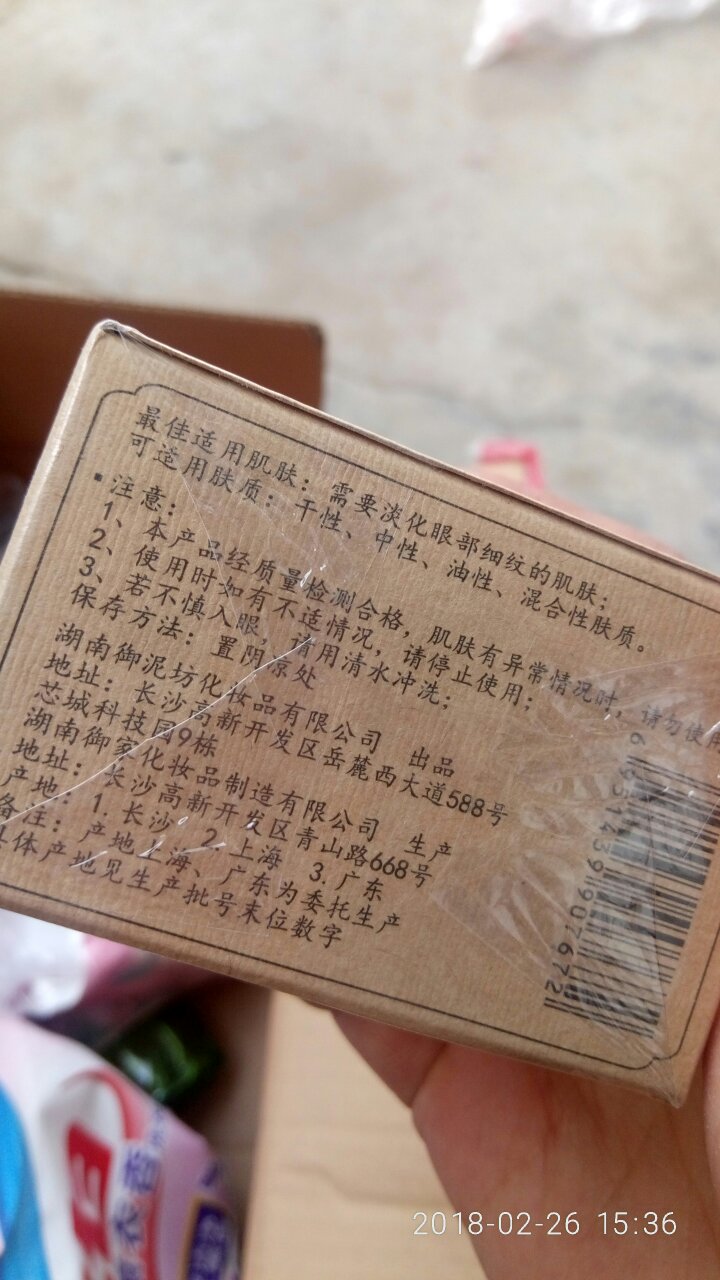 最佳适用肌肤：需要淡化眼部细纹的肌肤；
可适用肤质：干性、中性、油性、混合性肤质。
·注意：
1、本产品经质量检测合格，肌肤有异常情况时，请勿使用
2、使用时如有不适情况，请停止使用；
3、若不慎入眼，请用清水冲洗；
保存方法：置阴凉处
湖南御泥坊化妆品有限公司 出品
地址：长沙高新开发区岳麓西大道588号
芯城科技园9栋
湖南御家化妆品制造有限公司 生产
地址：长沙高新开发区青山路668号
产地：1.长沙 2.上海 3.广东
备注：产地上海、广东为委托生产
具体产地见生产批号末位数字
2018-02-26 15:36